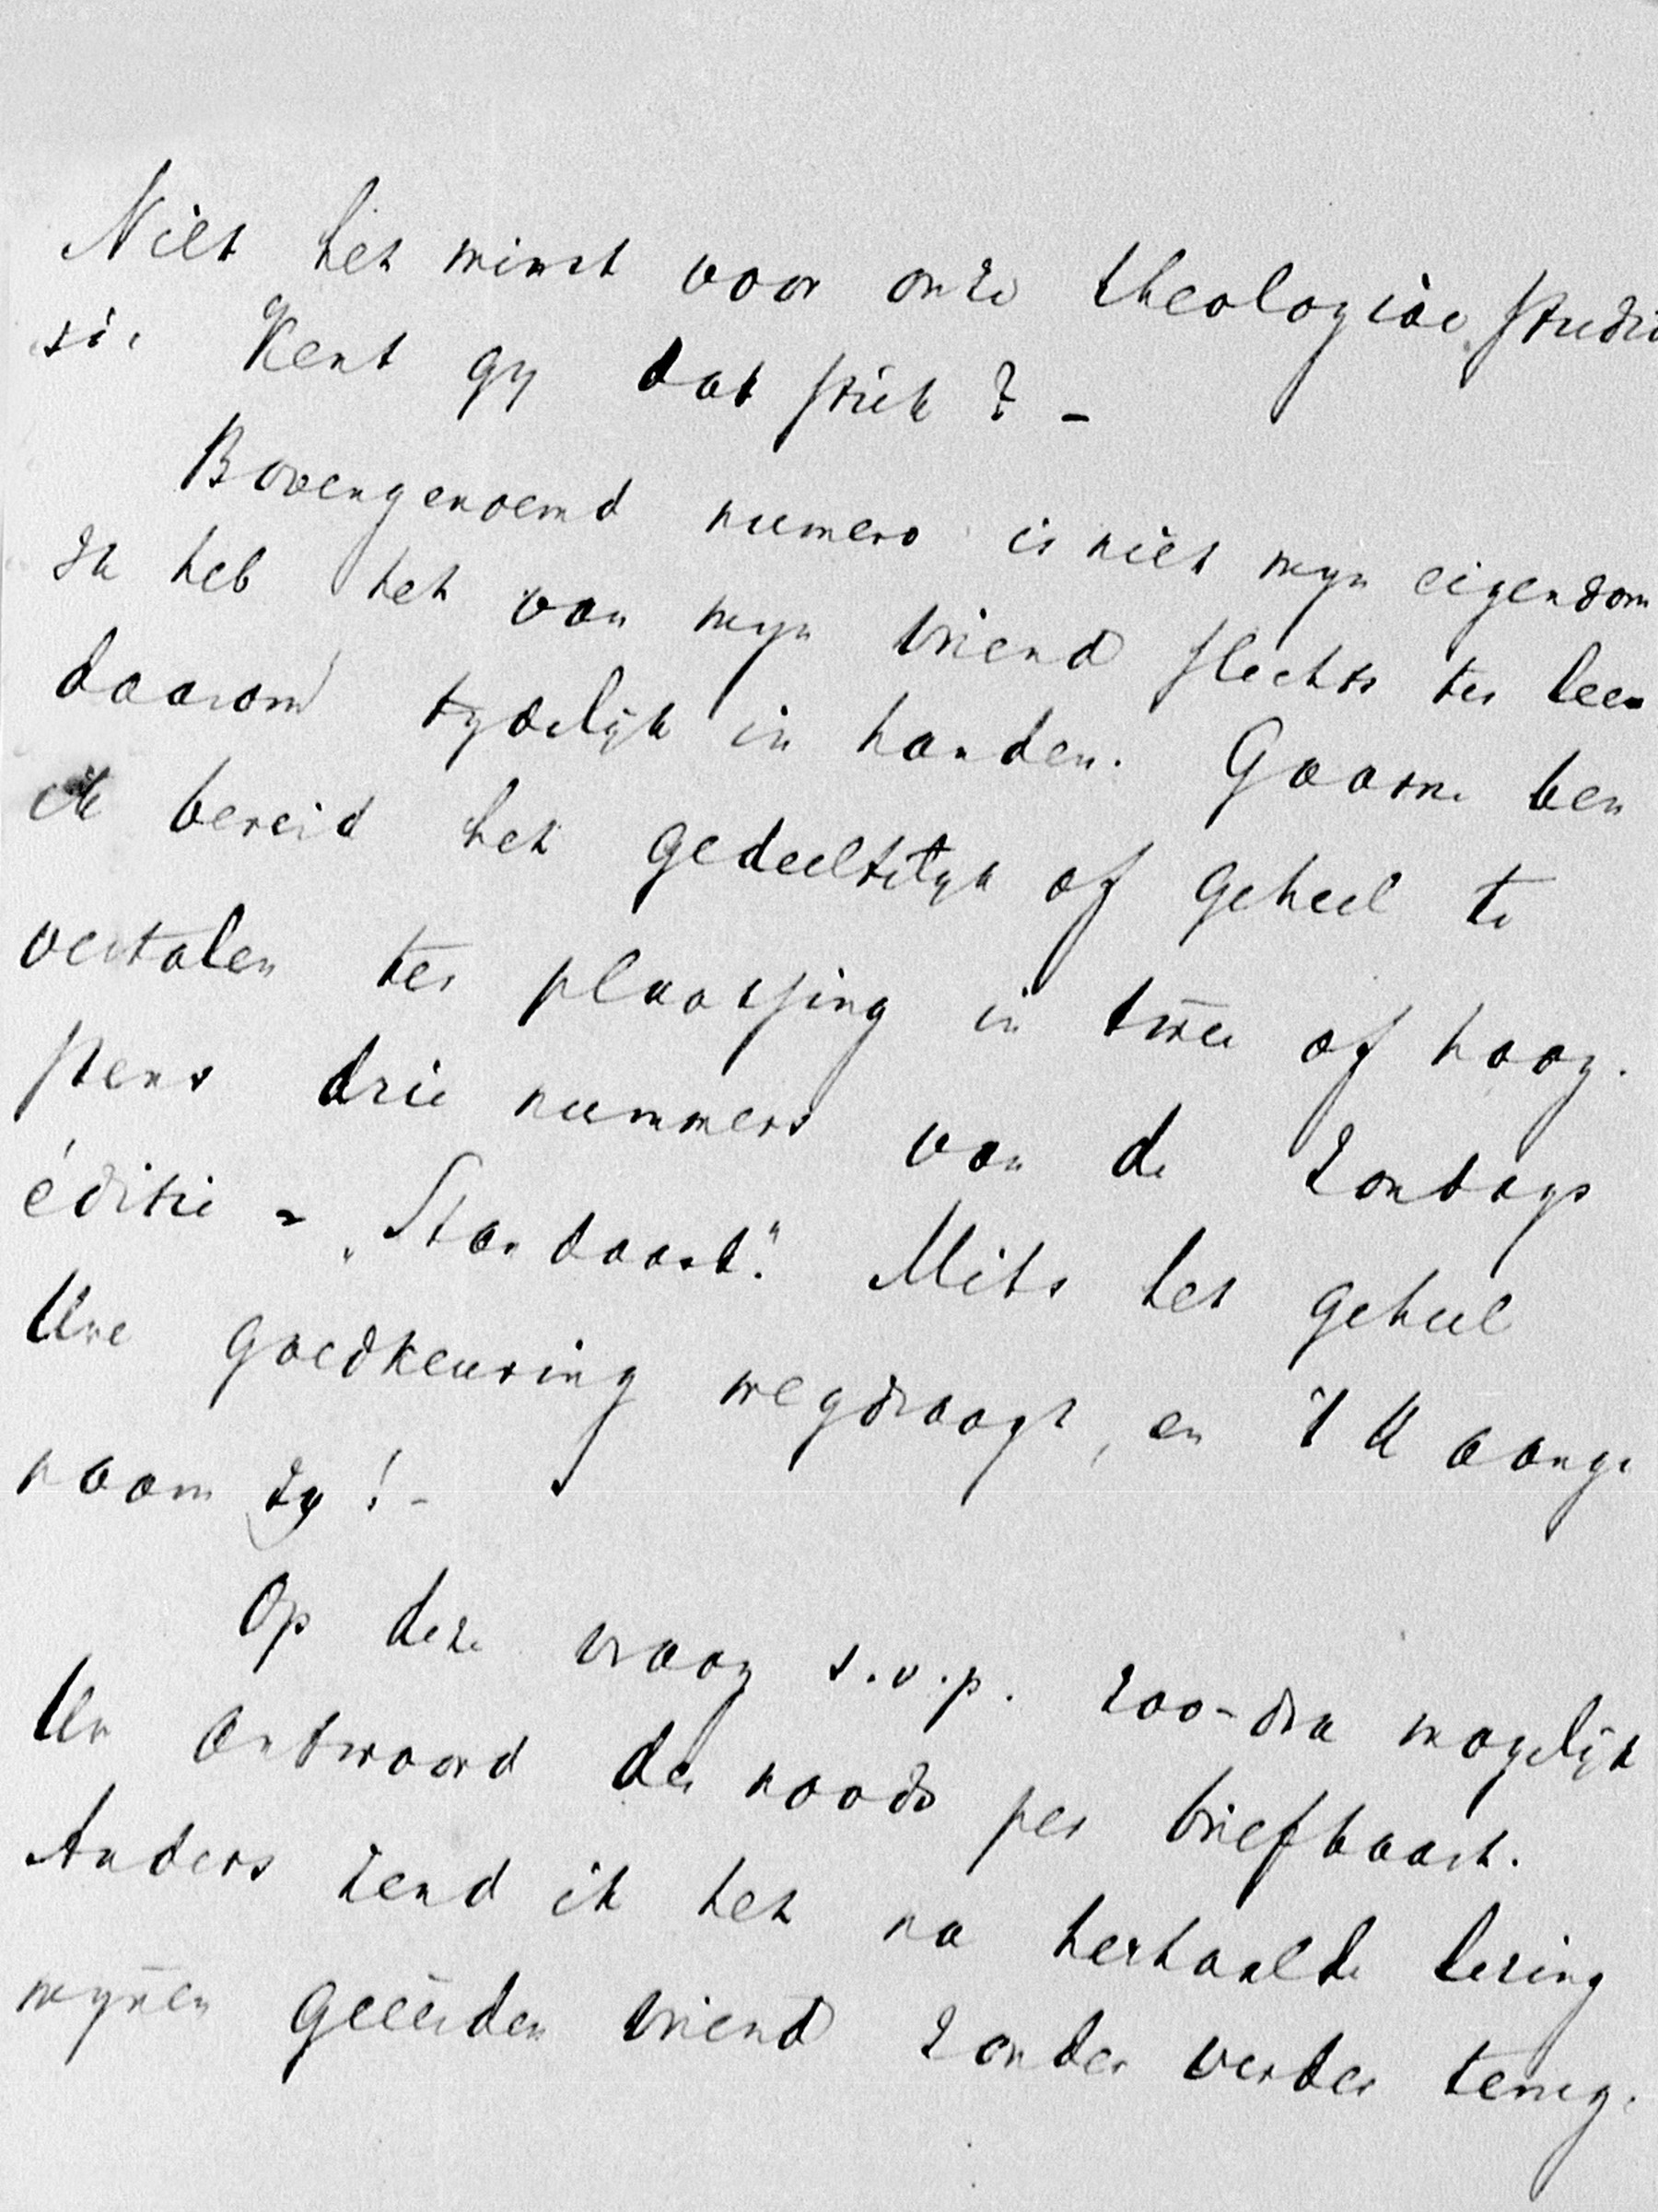 Niet het minst voor onze theologiae studio
si. Kent gy dat stuk? -
Bovengenoemd numero is niet myn eigendom
Ik heb het van myn vriend slechts ter leen
daarom tydelijk in handen. Gaarne ben
ik bereid het gedeeltelyk of geheel te
vertalen ter plaatsing in twee of hoog-
stens drie nummers van de Zondags
éditie = „Standaard". Mits het geheel
Uwe goedkeuring wegdraagt, en 't U aange
naam zy! -
Op deze vraag s.v.p. zoo-dra mogelijk
Uw antwoord des noods per briefkaart.
Anders zend ik het na herhaalde lezing
mynen geëerden vriend zonder verder terug.